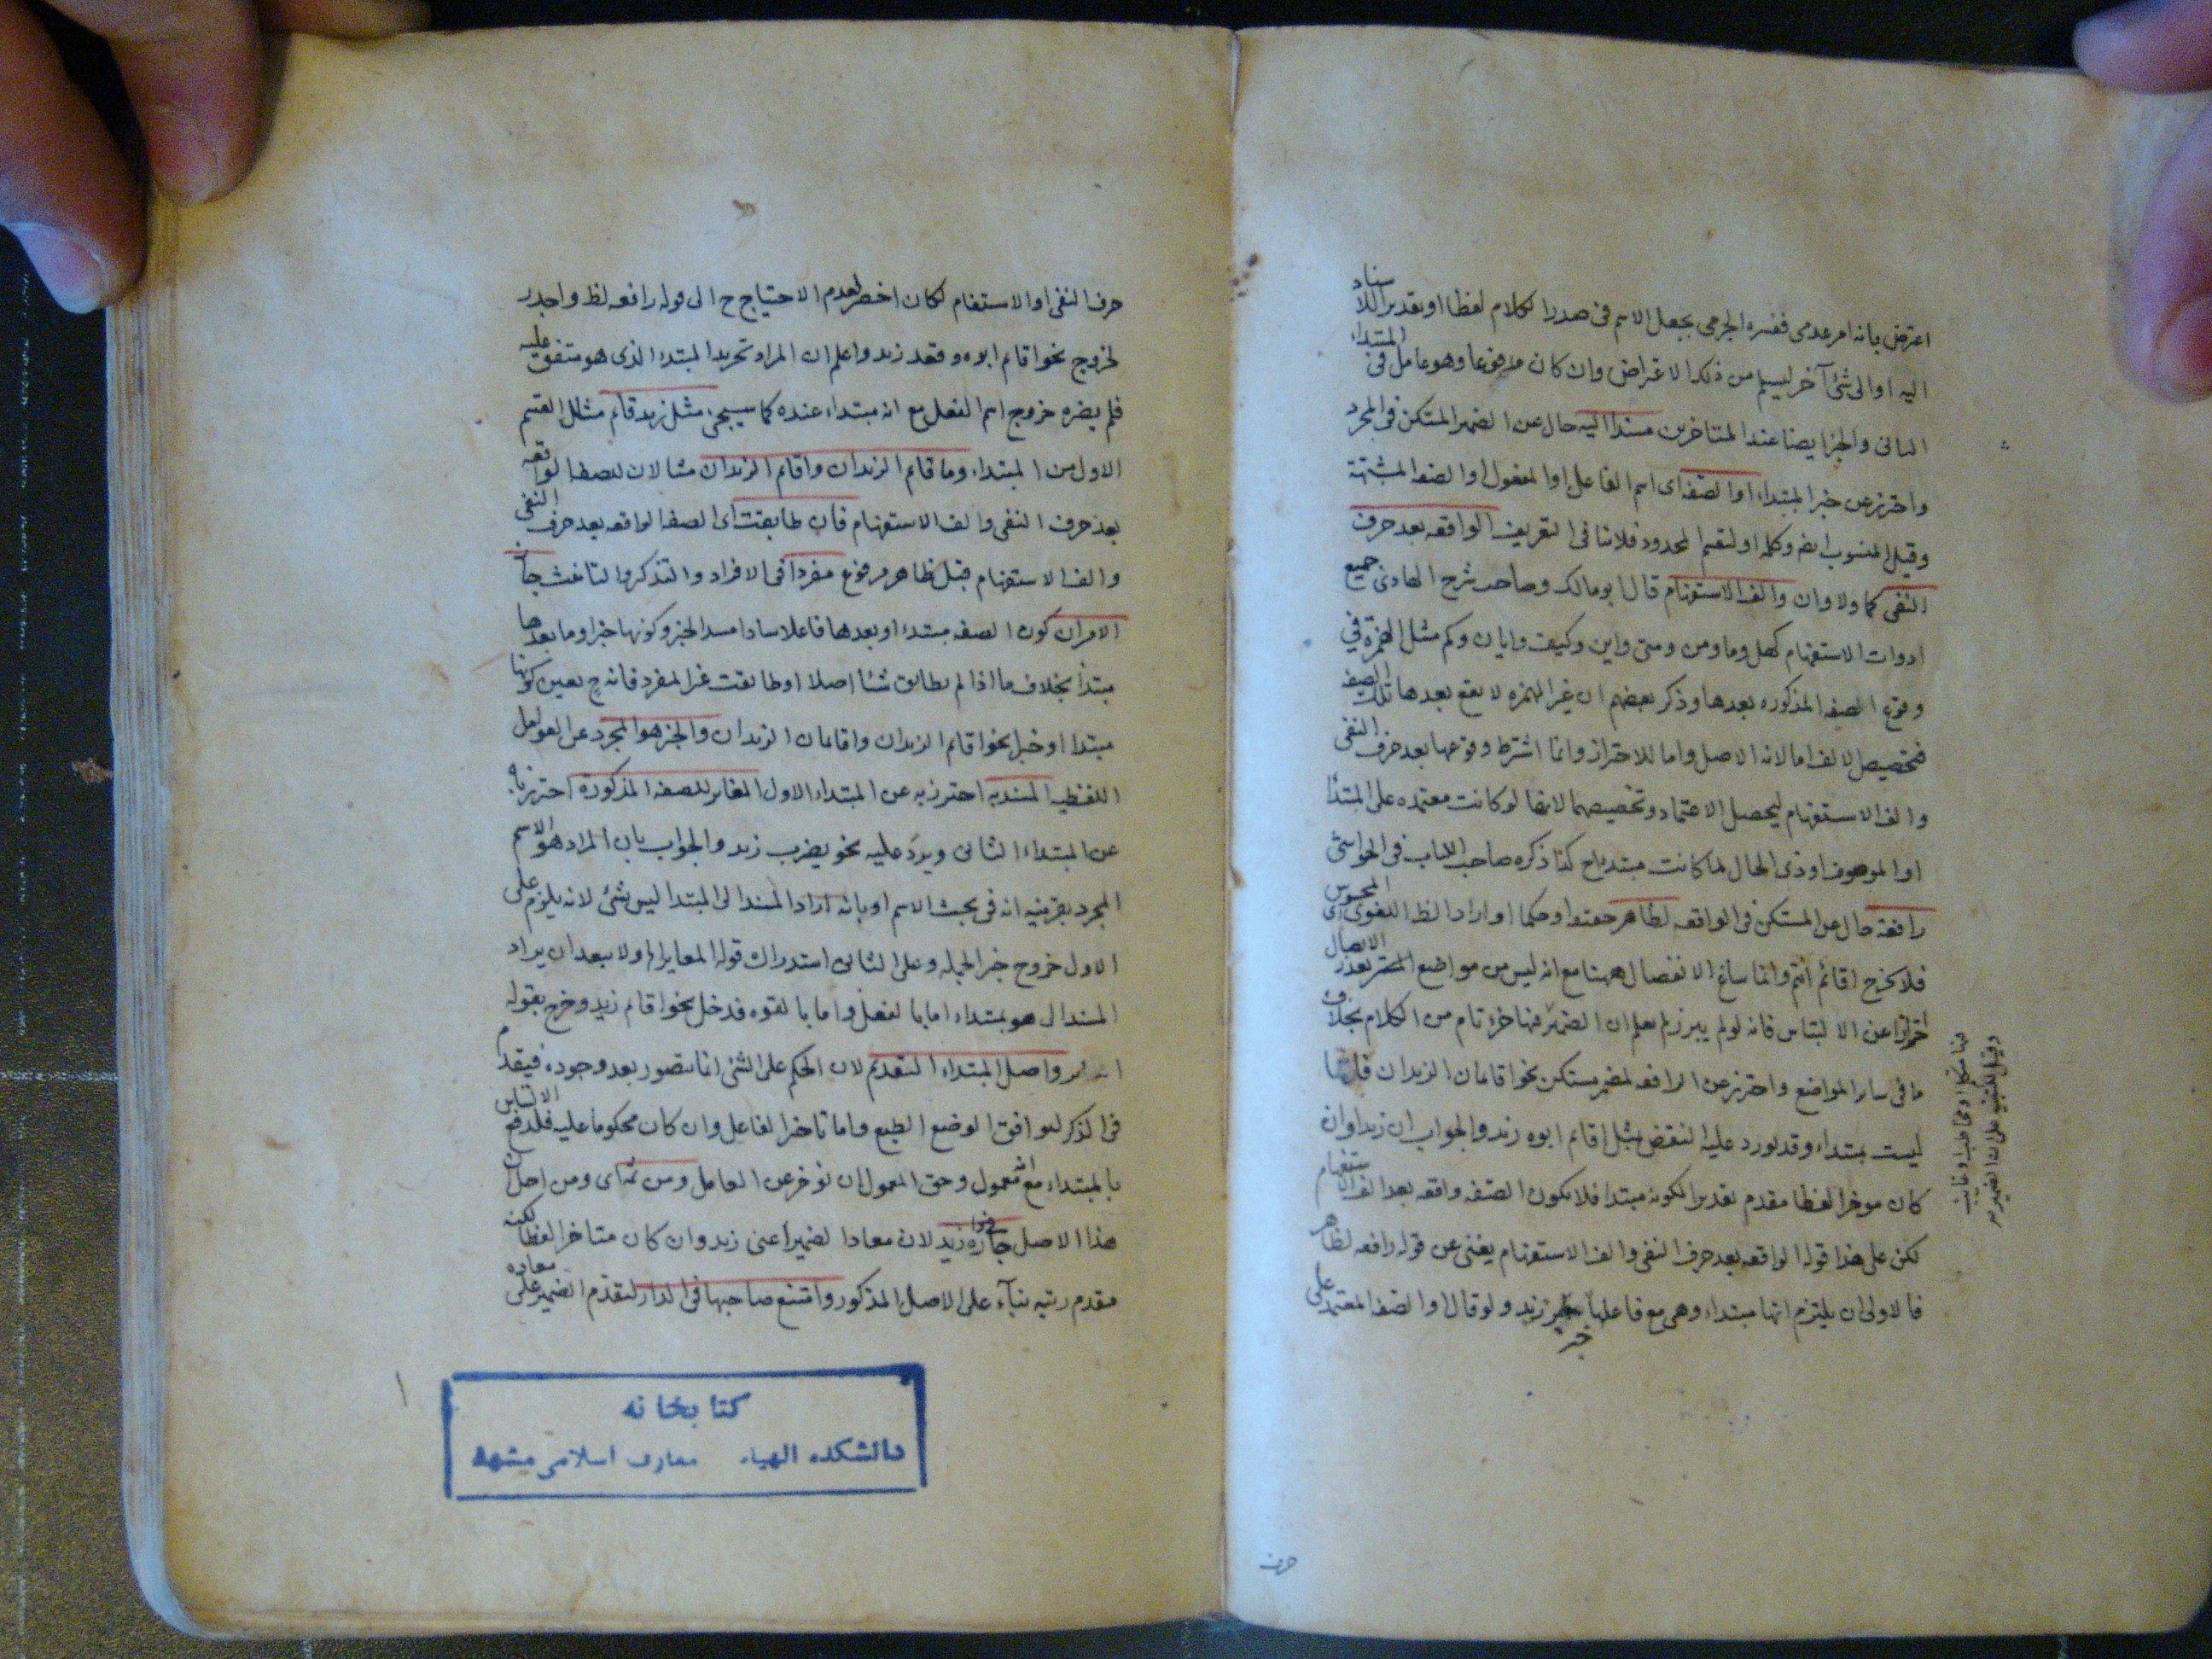 اعترض بانه امر عدمى ففسره الجرمى بجعل الاسم فى صدر الكلام لفظا او تقديرا للاسناد
اليه او الى شئ آخر ليسلم من ذلك الاعتراض وان كان مرفوعا وهو عامل فى المبتداء
الثانى والجزا يضا عند المتاخرين مسندا اليه حال عن الضمير المتكن فى المجرد
واحترز عن خبر المبتداء او الصفة اى اسم الفاعل او المفعول او الصفه المشبهة
وقيل المنسوب ايضا وكلمه او لتقسيم المحدود فلا تنافى التعريف الواقعه بعد حرف
النفى كما ولا وان والف الاستفهام قال ابو مالك وصاحب شرح الهادى جميع
ادوات الاستفهام كهل وما ومن ومتى واين وكيف وايان وكم مثل الهمزة في
وقوع الصفه المذكوره بعدها وذكر بعضهم ان غير الهمزه لا يقع بعدها تلك الصفه
فتخصيص الالف اما لانه الاصل واما للاحتراز وانما اشترط وقوعها بعد حرف النفى
والف الاستفهام ليحصل الاعتماد وتخصيصهما لانها لو كانت معتمده على المبتدا
او الموصوف او ذى الحال لما كانت مبتداء ح كذا ذكره صاحب اللباب فى الحواشى
رافعة حال عن المستكن فى الواقعه لظاهر حقيقة او حكما او اراد الظ اللغوى اى المحسوس
فلا يخرج اقائم انتم وانما ساغ الانفصال ههنا مع انه ليس من مواضع تعذر الاتصال
احترازا عن الالتباس فانه لو لم يبرز لم يعلم ان الضمير فيها جزء تام من الكلام بخلاف
ما فى سائر المواضع واحترز عن الرافعه لمضمر مستكن نحو اقائمان الزيدان فانها
ليست بمبتداء وقد يورد عليه النقض بمثل اقائم ابوه زيد والجواب ان زيدا وان
كان موخرا لفظا مقدم تقديرا لكونه مبتدا فلا يكون الصفه واقعه بعد الف الاستفهام
لكن على هذا قوله الواقعه بعد حرف النفى والف الاستفهام يغنى عن قوله رافعه لظاهر
فالاولى ان يلتزم انها مبتداء وهى مع فاعلها خبر زيد ولو قال او الصفه المعتمد على
خبر
حرف
حرف النفى او الاستفهام لكان اخصر لعدم الاحتياج ح الى قوله رافعه لظ واجدر
لخروج نحو اقائم ابوه وقعد زيد واعلم ان المراد تحريد المبتدء الذى هو متفق عليه
فلم يضره خروج اسم الفعل مع انه مبتداء عنده كما سيجى مثل زيد قائم مثال القسم
الاول من المبتداء وما قائم الزيدان واقائم الزيدان مثالان للصفه الواقعه
بعد حرف النفى والف الاستفهام فان طابقت اى الصفه الواقعه بعد حرف النفى
والف الاستفهام قبل ظاهر مرفوع مفردا فى الافراد والتذكير والتانيث جاز
الامران كون الصفه مبتدء او بعدها فاعلا سادا مسد الخبر وكونها خبرا وما بعدها
مبتدأ بخلاف ما اذا لم يطابق شئا اصلا او طابقت غير المفرد فانه ح يعين كونها
مبتدا او خبرا نحو اقائم الزيدان واقائمان الزيدان والخبر هو المجرد عن العوامل
اللفظيه المسند به احترز به عن المبتداء الاول المغاير للصفه المذكورة احترز به
عن المبتداء الثانى ويرد عليه نحو يضرب زيد والجواب بان المراد هو الاسم
المجرد بقرينه انه فى بحث الاسم او بانه اراد المسند الى المبتدا ليس بشئ لانه يلزم على
الاول خروج خبر الجمله وعلى الثانى استدراك قوله المغاير الخ ولا يبعد ان يراد
المسند الى هو بمبتداء اما بالفعل واما بالقوه فدخل نحو اقائم زيد وخرج بقوله
واصل المبتداء التقديم لان الحكم على الشئ انما يتصور بعد وجوده فيقدم
فى الذكر ليوافق الوضع الطبع واما تاخر الفاعل وان كان محكوما عليه فلدفع الالتباس
بالمبتداء مع انه معمول وحق المعمول ان يوخر عن العامل ومن ثمه اى ومن اجل ان
هذا الاصل جاز فى داره زيد لان معاد الضمير اعنى زيد وان كان متاخرا لفظا لكنه
مقدم رتبه بناء على الاصل المذكور وامتنع صاحبها فى الدار لتقدم الضمير على معاده
كتابخانه
دانشكده الهيات معارف اسلامى مشهد